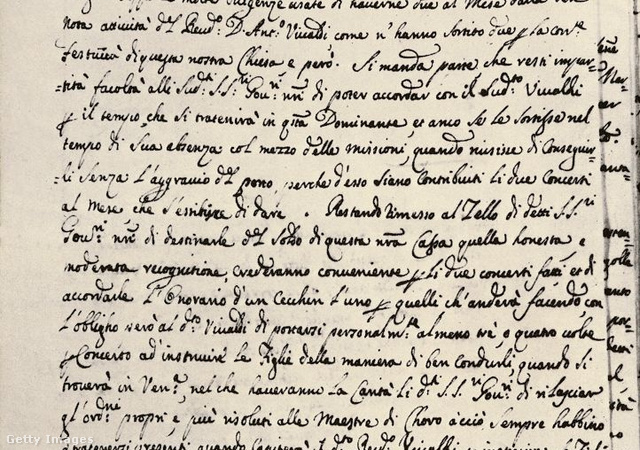 nota attività del Revd.º D. Ant.º Vivaldi come n' hanno sortito due p la corte
Festività di questa nostra Chiesa e però. Si manda parte che resti impar-
tità facoltà alli Sud.ti S.S.ri Gov.ri nri di poter accordar con il Sud.to Vivaldi
p il tempo, che si tratenirà in qsta Dominante, et anco se le sortisse nel
tempo di sua absenza col mezzo delle missioni, quando riusisse di Conseguir-
li senza l'aggravio del porto, perche d'esso siano Contribuiti li due Concerti
al Mese, che s'esibisse di dare. Restando rimesso al Zello di detti S.S.ri
Gov.ri nri di destinarle del Solso di questa nra Cassa quella honesta e
moderata recognitione, crederanno conveniente p li due concerti fatti et di
accordarle l'Onorario d'un Cecchin l'uno p quelli ch'anderà facendo, con
l'obligho però al d.to Vivaldi di portarsi personalm.te almeno trè, o quatro volte
p Concerto ad instruire le Figlie della maniera di ben Condurli, quando si
trouerà in Ven.a, nel che haveranno la Carità li d.ti S.S.ri Gov.ri di rilasciar
gl'ord.ni propri e più risoluti alle Maestre di Choro acciò sempre habbino
Getty Images